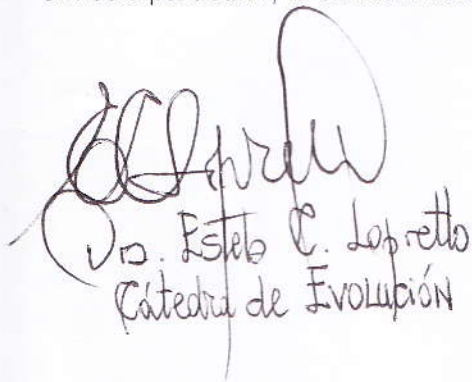 Dra. Estela C. Lopretto
Cátedra de EVOLUCIÓN